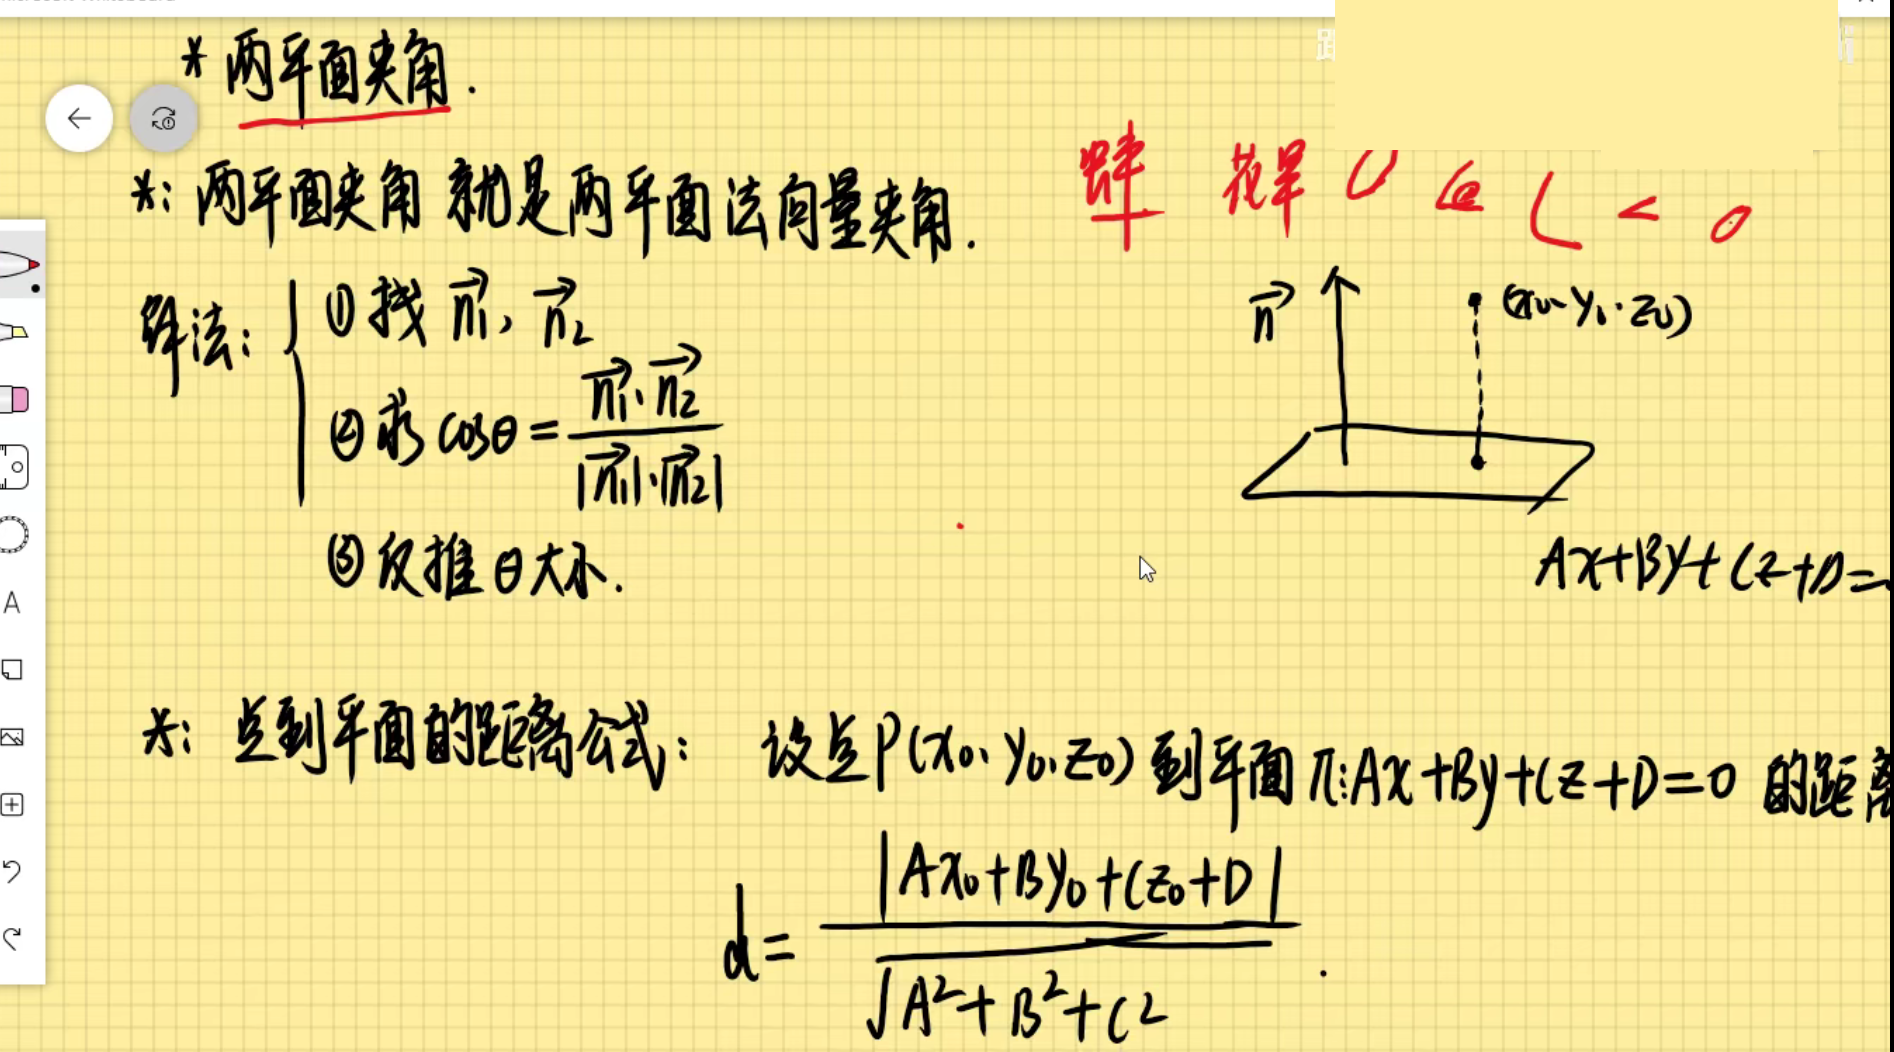 * 两平面夹角.
*: 两平面夹角 就是两平面法向量夹角.
解法: ① 找 n₁⃗, n₂⃗
② 求 cosθ = (n₁⃗·n₂⃗)/(|n₁⃗|·|n₂⃗|)
③ 反推 θ 大小.
n⃗
Ax+By+Cz+D=
*: 点到平面的距离公式: 设点P(x₀, y₀, z₀) 到平面 π: Ax+By+Cz+D=0 的距离
d = |Ax₀+By₀+Cz₀+D| / √(A²+B²+C²).